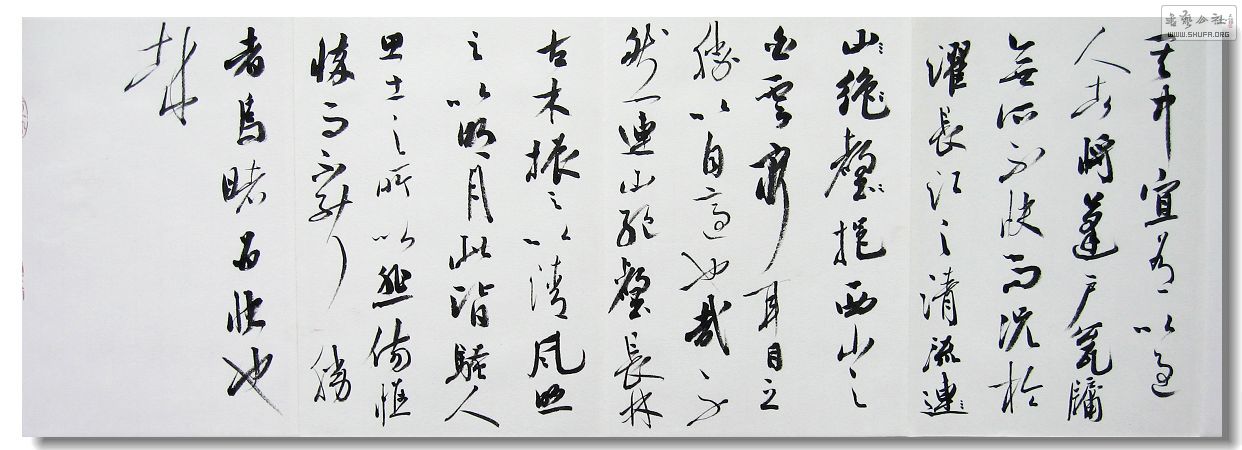 其中宜有以過
人者將蓬戶甕牖
無所不快而況於
濯長江之清流連
山絕壑挹西山之
白雲窮耳目之
勝以自適也哉不
然連山絕壑長林
古木振之以清風照
之以明月此皆騷人
思士之所以悲傷憔
悴而不能勝
者烏睹為快也
書藝公社
WWW.SHUFA.ORG